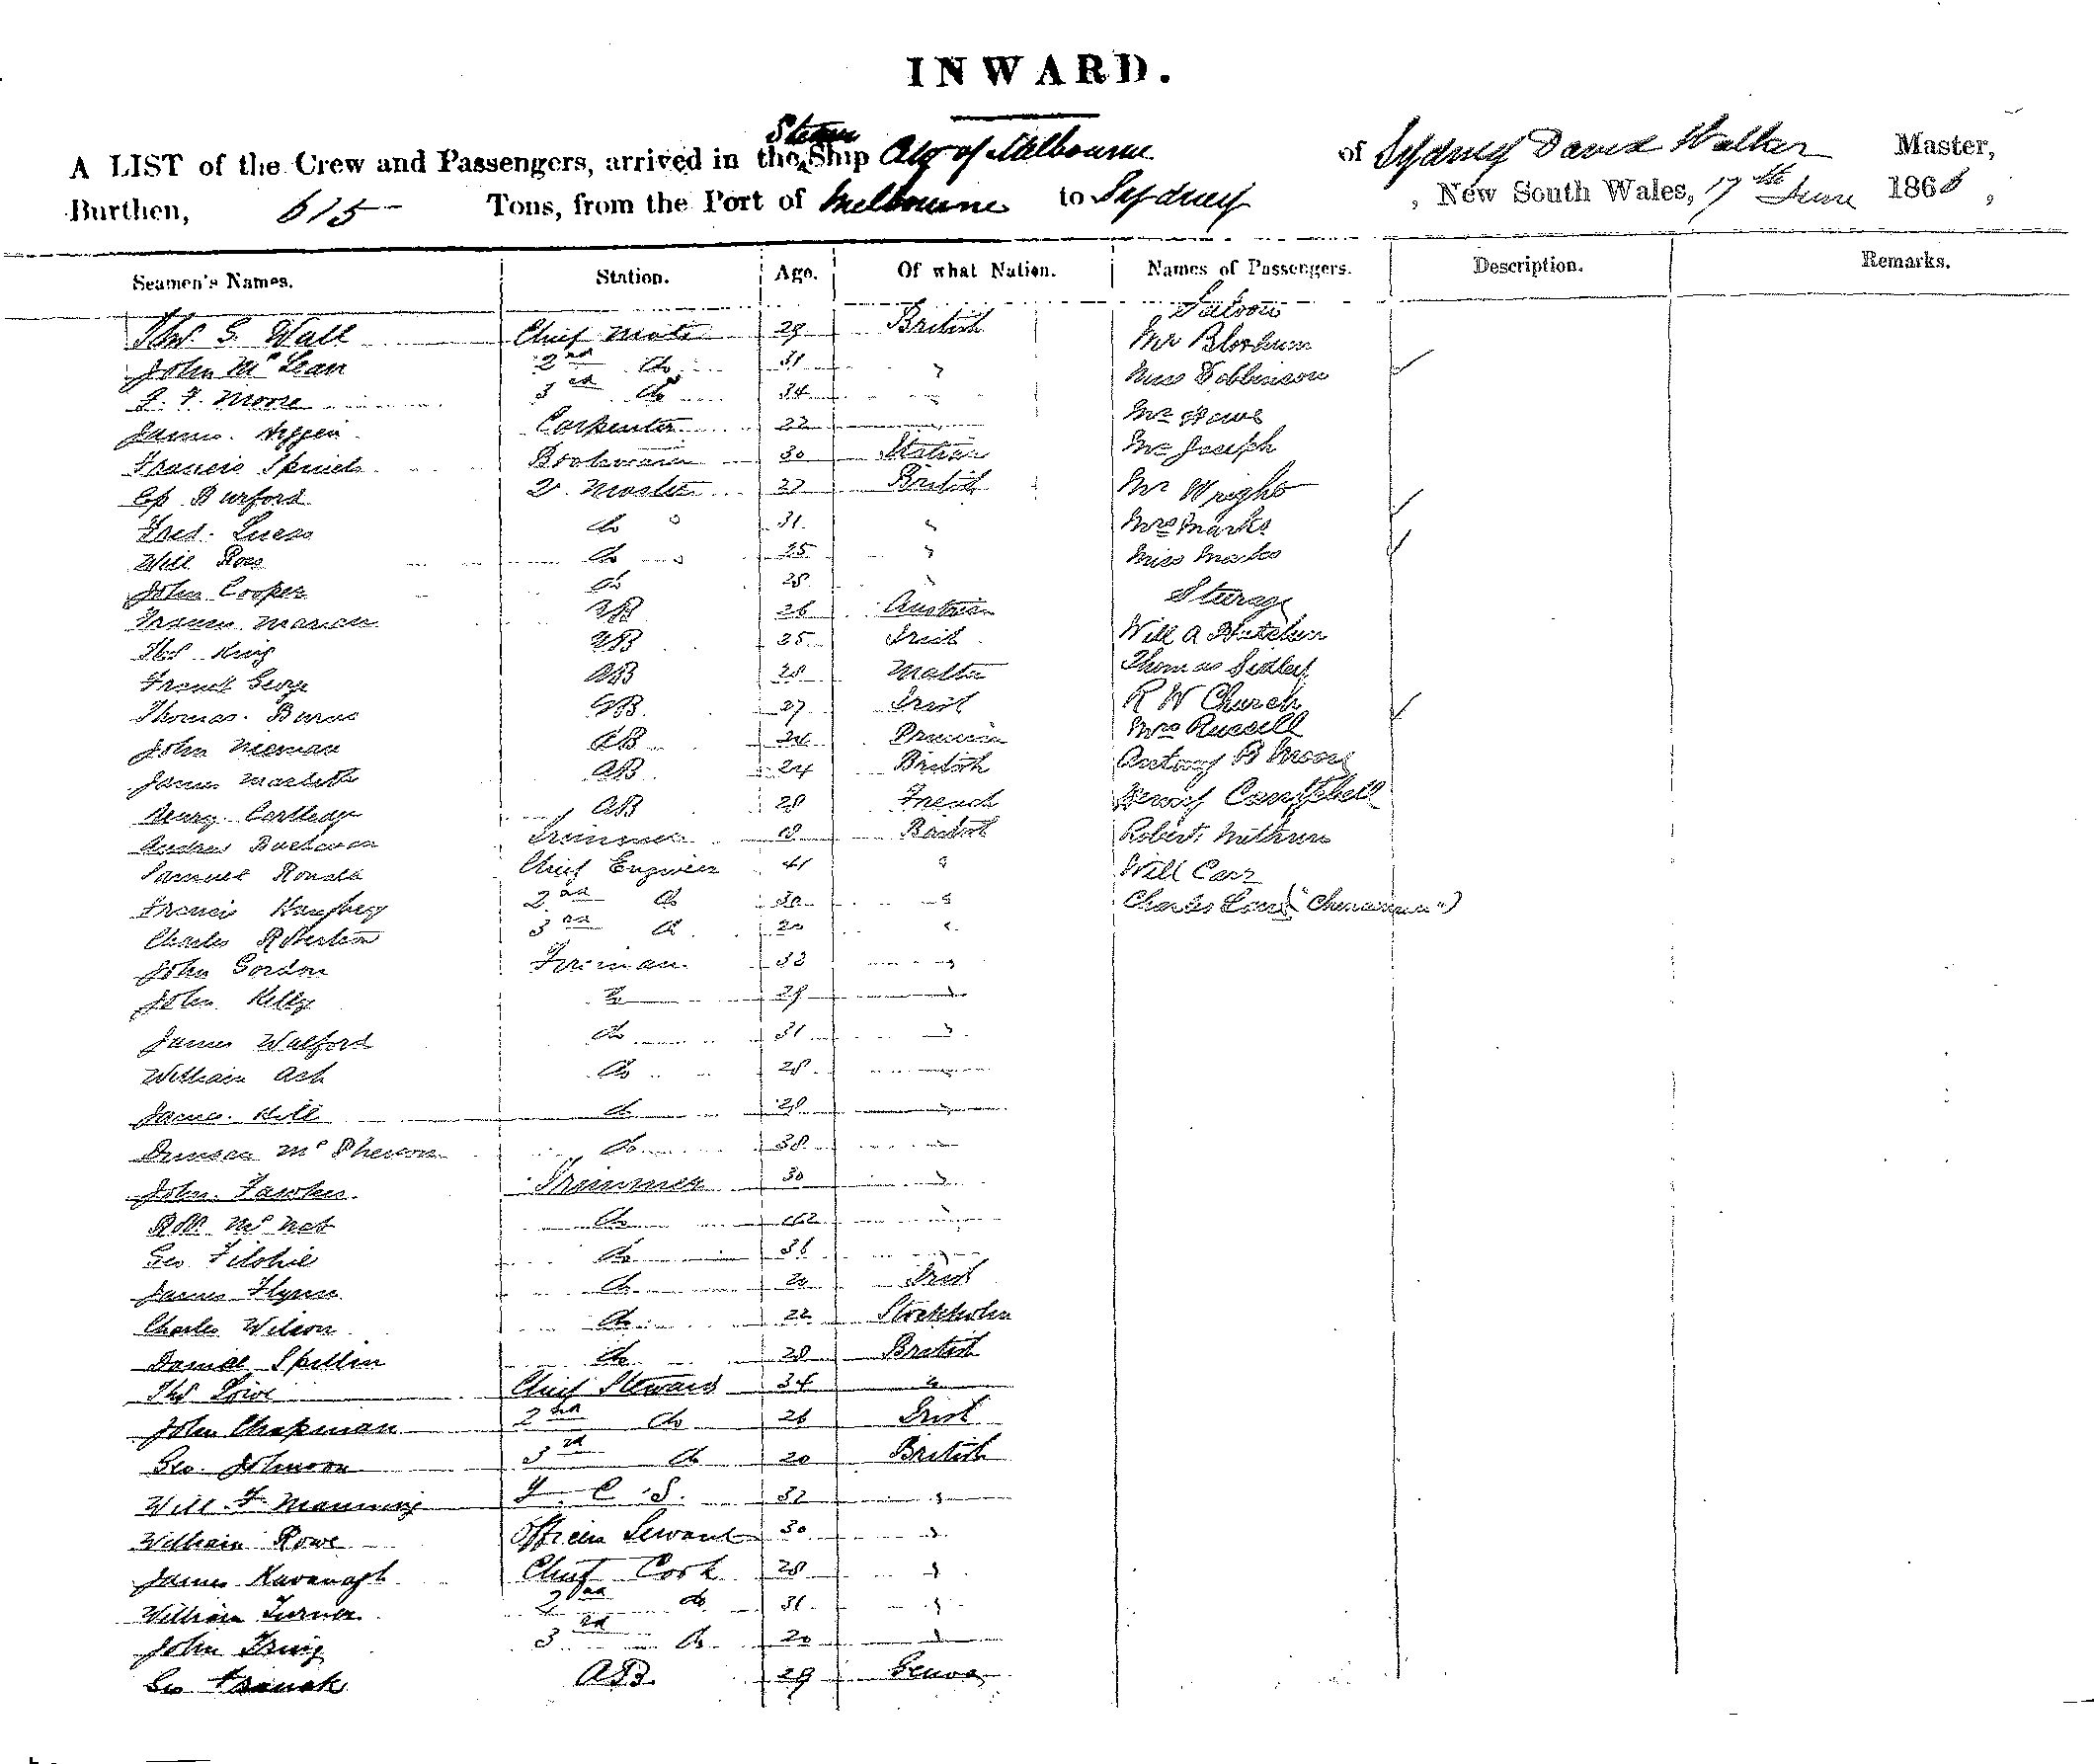 INWARD.
A LIST of the Crew and Passengers, arrived in the Steam Ship City of Melbourne of Sydney David Walker Master,
Burthen, 615 - Tons, from the Port of Melbourne to Sydney, New South Wales, 17th June 1866,
Seamen's Names. Station. Age. Of what Nation. Names of Passengers. Description. Remarks.
Saloon
Thos. G. Wall Chief Mate 29 British Mr
John McLean 2nd do 31 " Miss
J. F. Moore 3rd do 34 "
James Carpenter 22 Mr
Francis 30 Italian Mr Joseph
Burford Q. Master 27 British Mr Wright
Fred. Lucas do 31 " Mrs Marks
Will Ross do 25 " Miss Marks
John Cooper do 28 " Steerage
AB 26 Austrian
Thos King AB 25 Irish Will A
Frank George AB 28 Malta Thomas Sidley
Thomas Burns AB 27 Irish R W Church
John Nieman AB 24 Prussia Mrs Russell
James AB 24 British B
Henry AB 28 French Henry Campbell
Andrew Trimmer 18 British Robert
Samuel Ronald Chief Engineer 41 " Will Carr
Francis Humphrey 2nd do 30 " Charles
Charles Robertson 3rd do 20 "
John Gordon Fireman 32 "
John Kelly do 29 "
James Walford do 31 "
William Ash do 28 "
James Hill do 28 "
Duncan McPherson do 38 "
John Fawkes Trimmer 30 "
do "
Geo do 36 "
James Flynn do 20 Irish
Charles Wilson do 22 Stockholm
Daniel Spillin do 28 British
Thos Lowe Chief Steward 34 "
John Chapman 2nd do 26 Irish
Geo. Johnson 3rd do 20 British
Will. F Manning F. C. S. 32 "
William Rowe Officers Servant 30 "
James Kavanagh Chief Cook 28 "
William Turner 2nd do 31 "
John 3rd do 20 "
Geo AB 29 Genoa